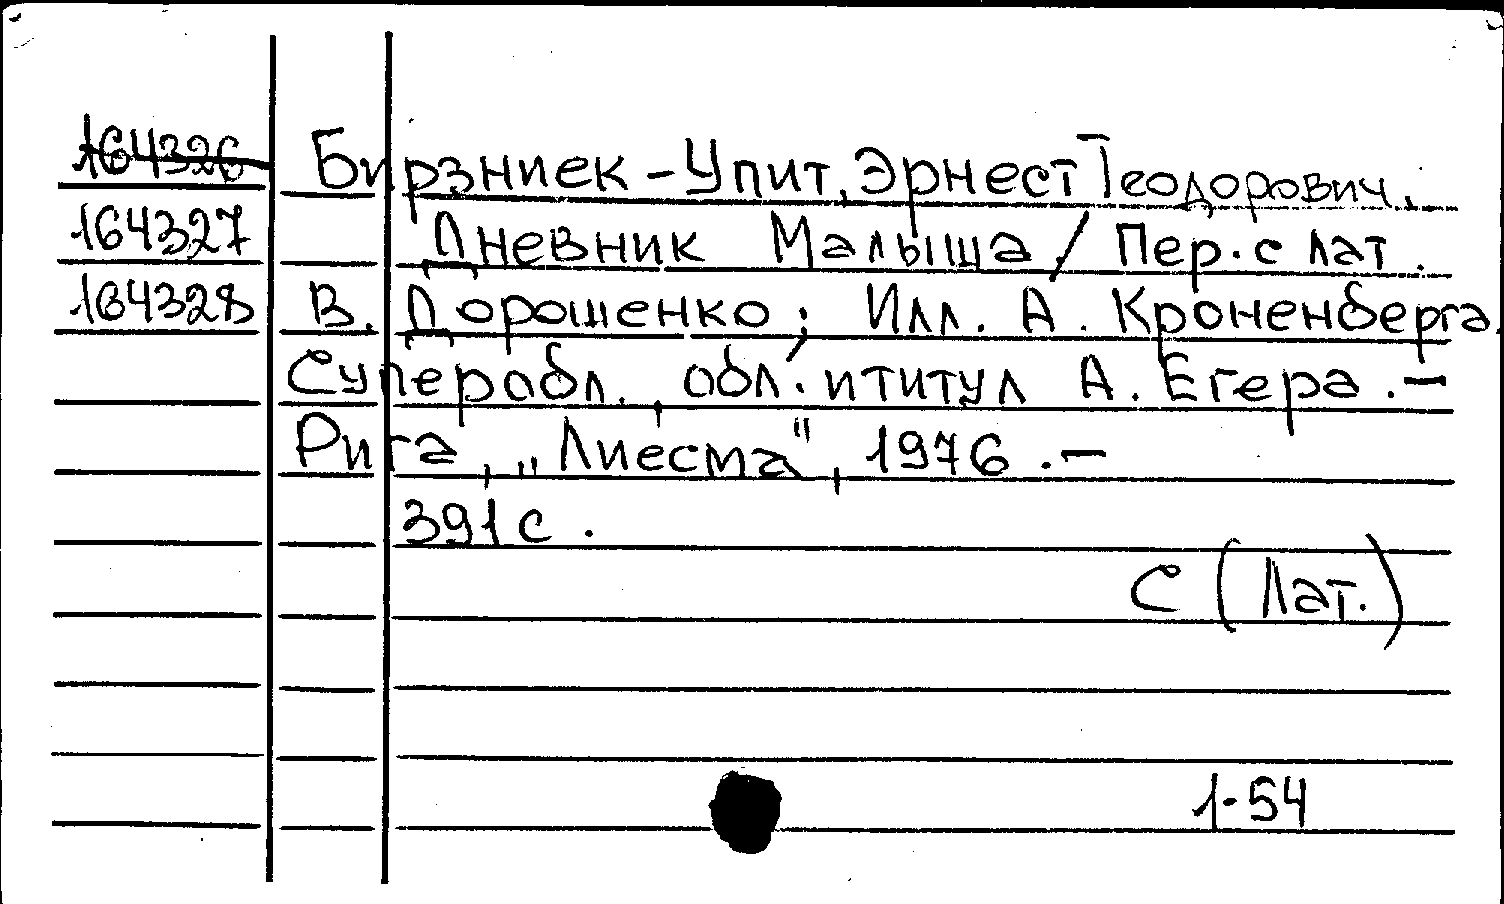 164326 Бирзниек-Упит, Эрнест Теодорович.
164327 Дневник Малыша / Пер. с лат.
164328 В. Дорошенко; Илл. А. Кроненберга,
Суперобл., обл. и титул А. Егера. –
Рига, „Лиесма", 1976. –
391 с.
С (Лат.)
1-54